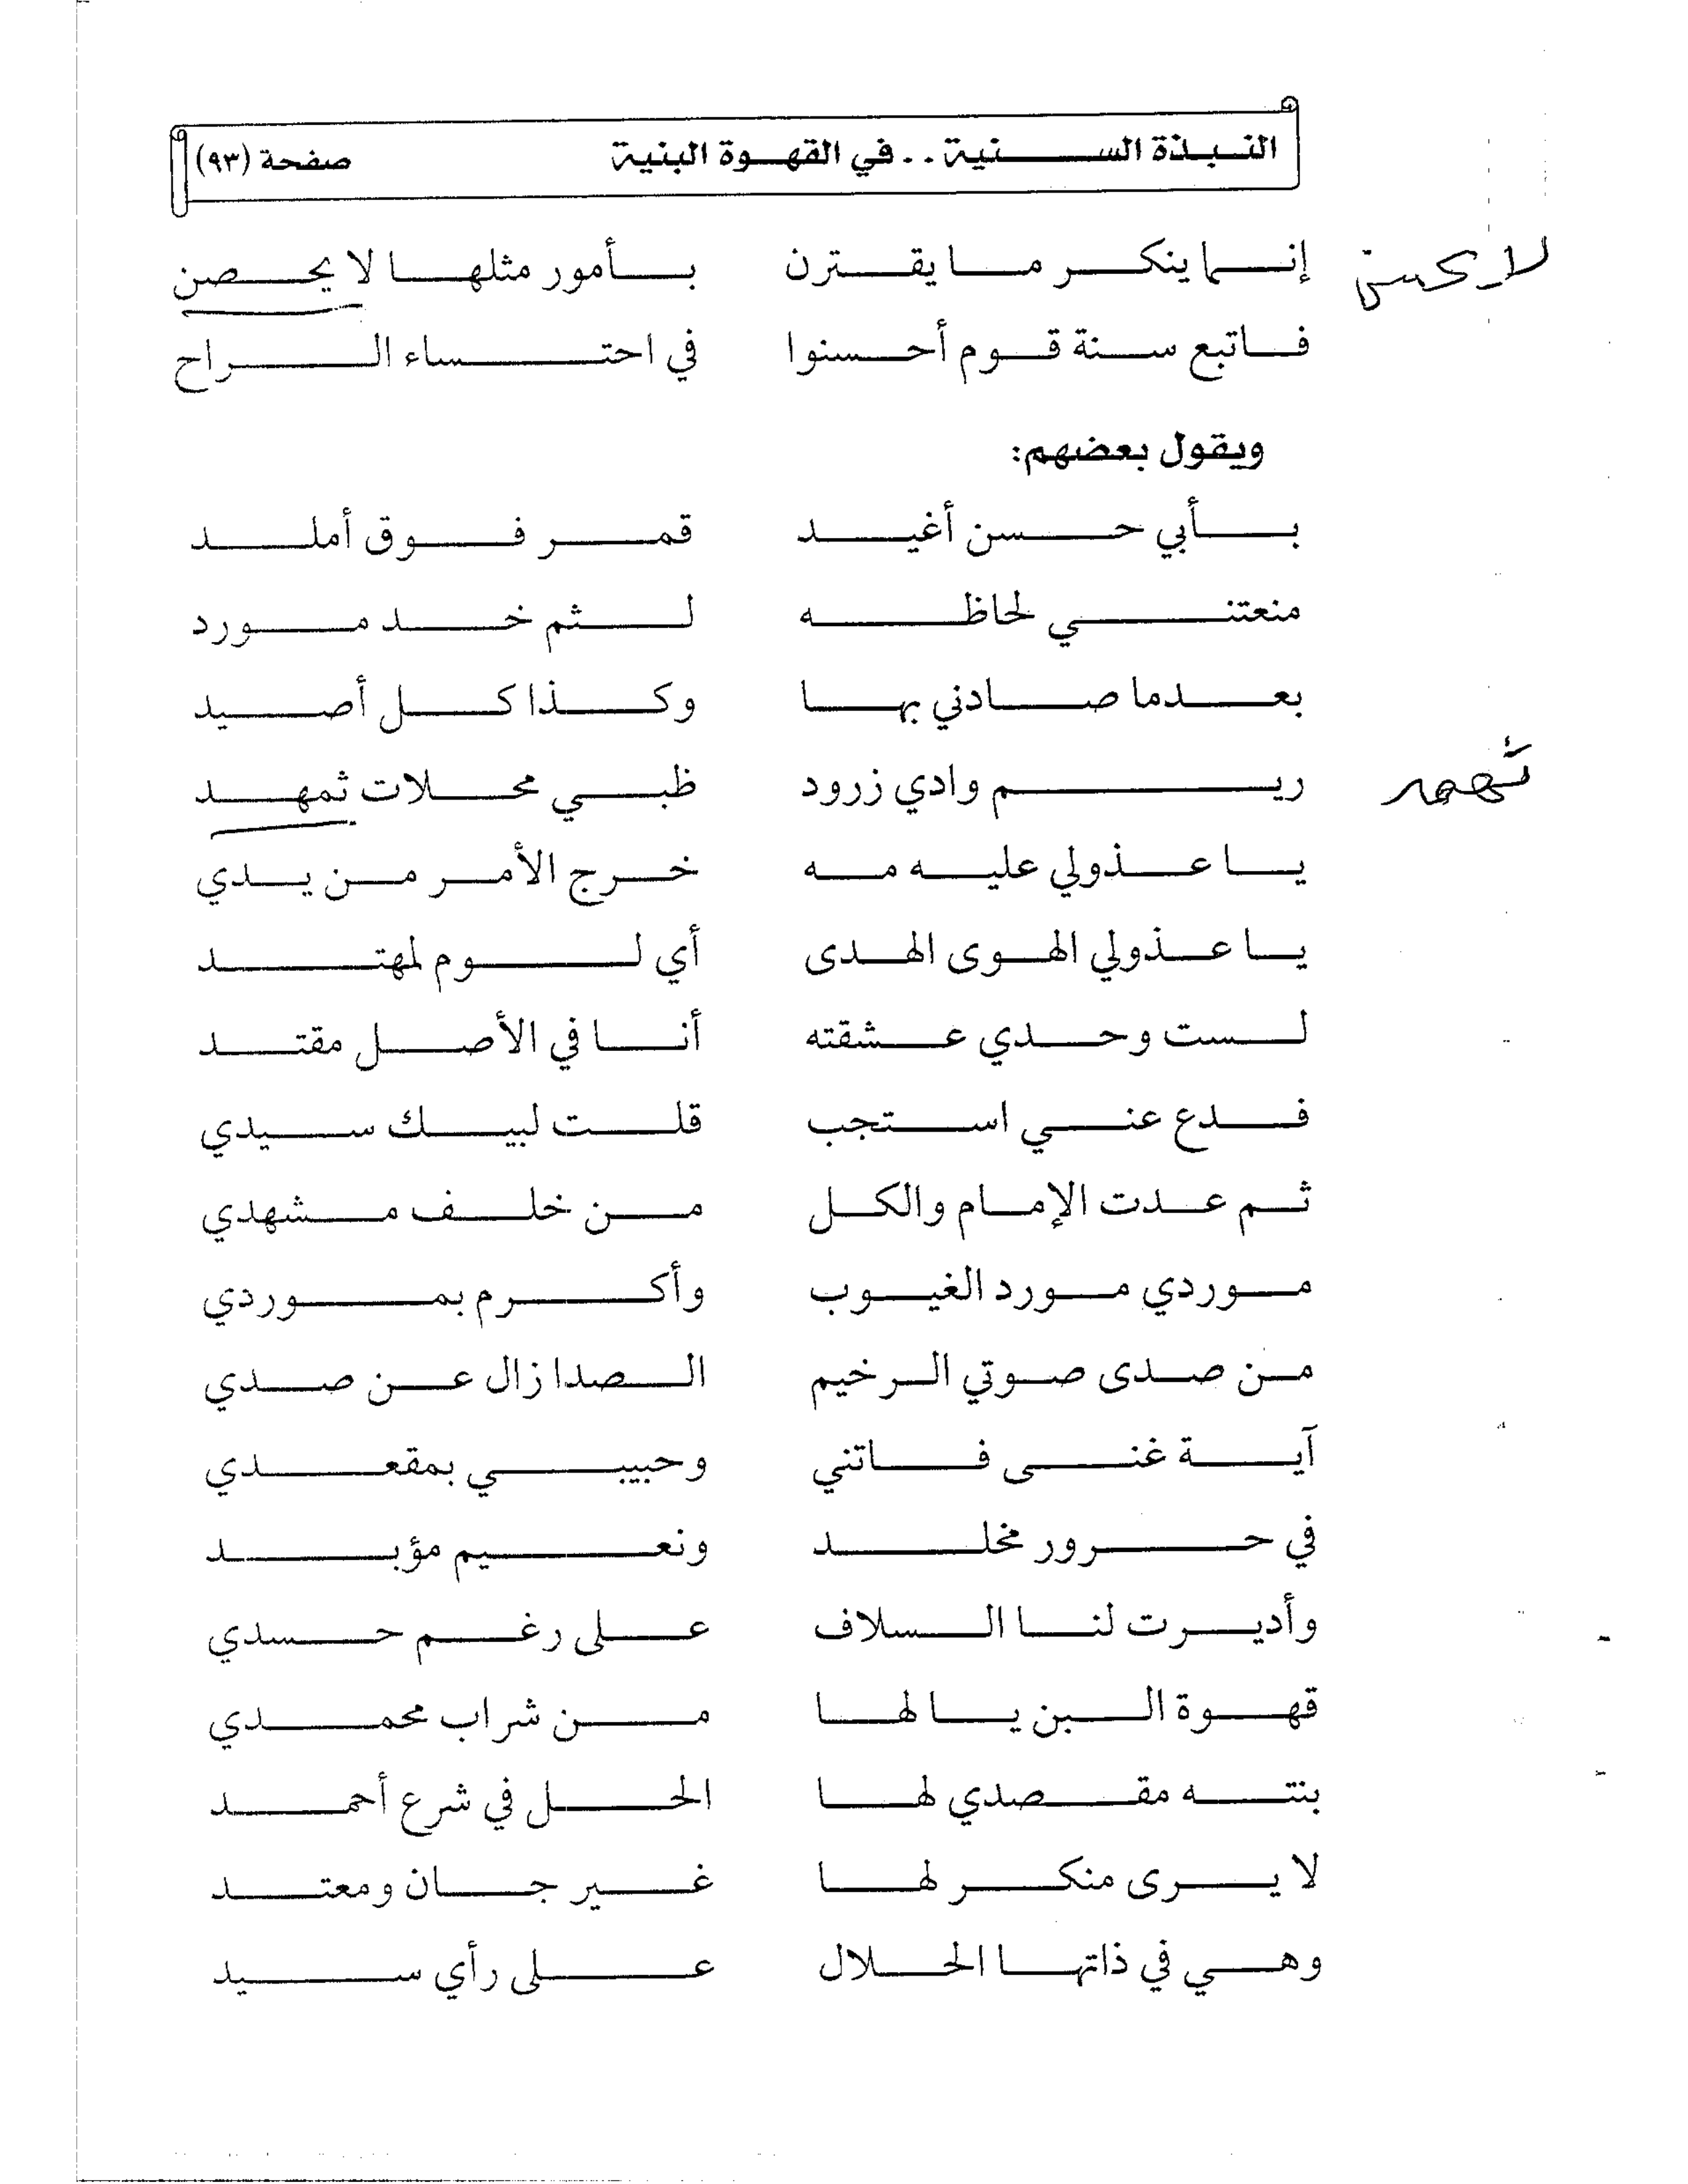 النبذة السنية.. في القهوة البنية صفحة (٩٣)
إنما ينكر ما يقترن بأمور مثلها لا يحصن
لا يحسن
فاتبع سنة قوم أحسنوا في احتساء الراح
ويقول بعضهم:
بأبي حسن أغيد قمر فوق أملد
منعتني لحاظه لثم خد مورد
بعدما صادني بها وكذا كل أصيد
ريم وادي زرود ظبي محلات ثمهد
ثهمد
يا عذولي عليه مه خرج الأمر من يدي
يا عذولي الهوى الهدى أي لوم لمهتد
لست وحدي عشقته أنا في الأصل مقتد
فدع عني استجب قلت لبيك سيدي
ثم عدت الإمام والكل من خلف مشهدي
موردي مورد الغيوب وأكرم بموردي
من صدى صوتي الرخيم الصدا زال عن صدي
آية غنى فاتني وحبيبي بمقعدي
في حرور مخلد ونعيم مؤبد
وأديرت لنا السلاف على رغم حسدي
قهوة البن يا لها من شراب محمدي
بنته مقصدي لها الحل في شرع أحمد
لا يرى منكر لها غير جان ومعتد
وهي في ذاتها الحلال على رأي سيد